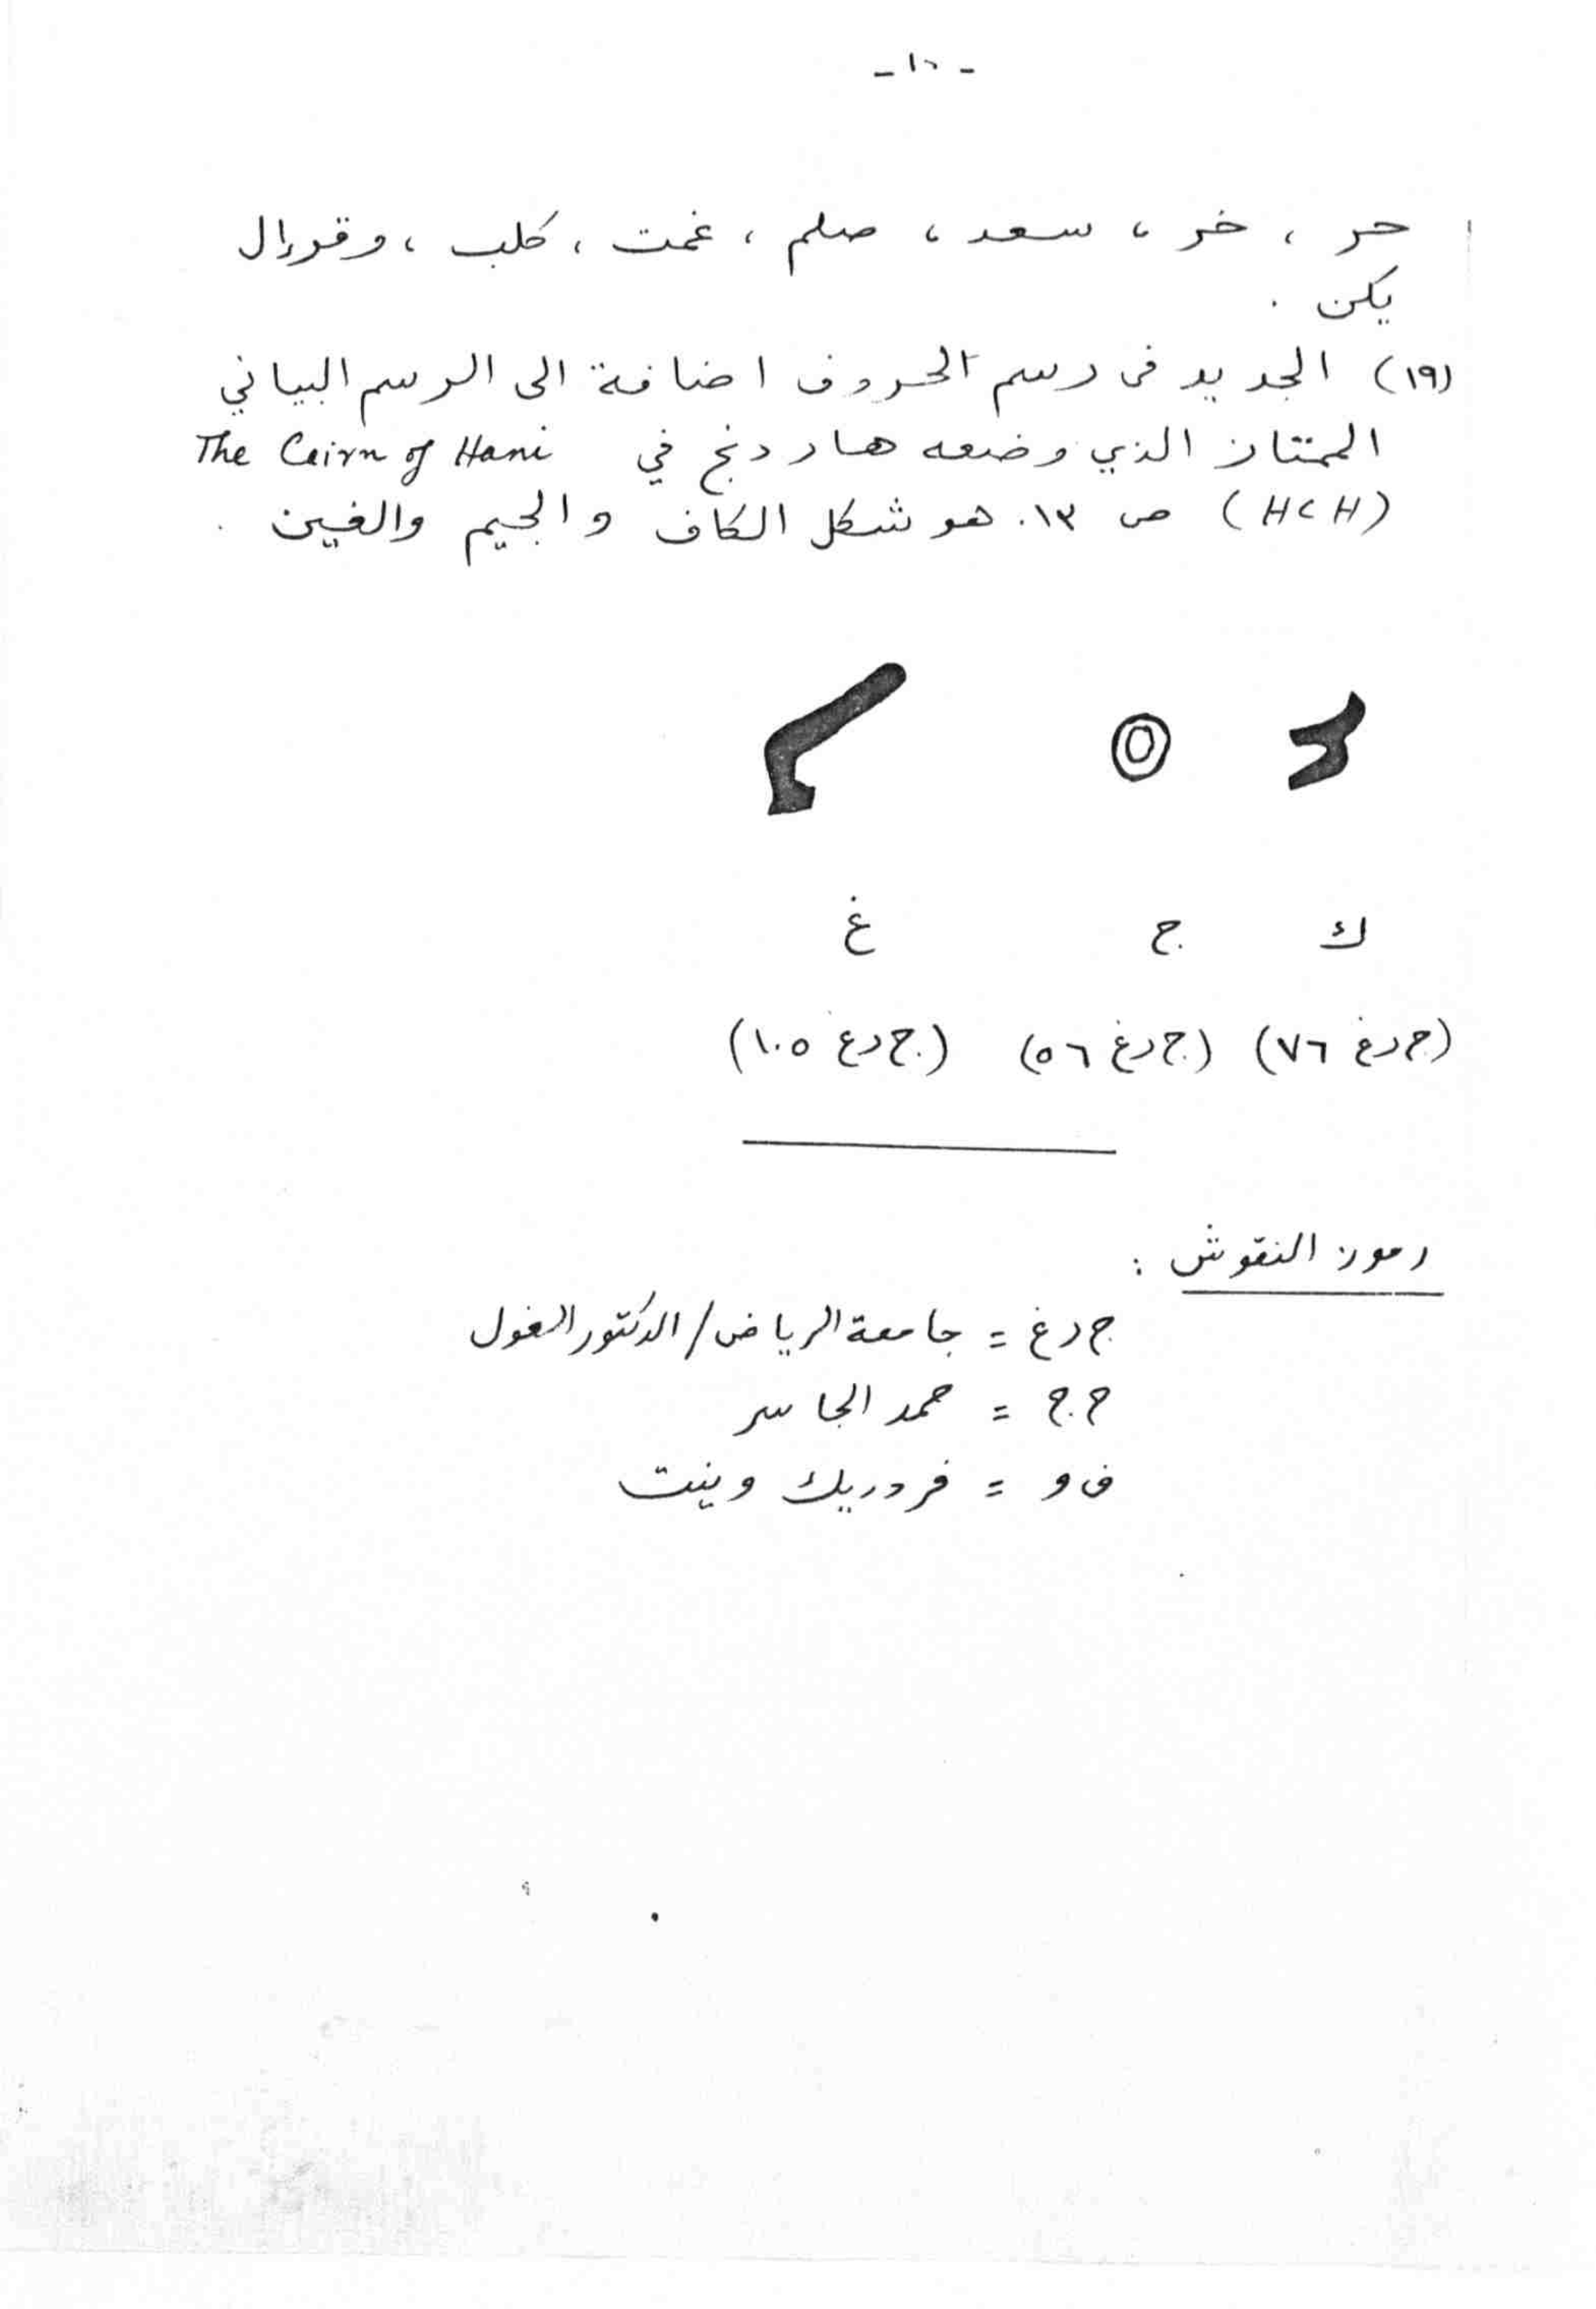 - ١٠ -
حر ، خر ، سعد ، صلم ، غمت ، كلب ، وقرءال
يكن .
(١٩) الجديد في رسم الحروف اضافة الى الرسم البياني
الممتاز الذي وضعه هاردنج في The Cairn of Hani
(HCH) ص ١٣. هو شكل الكاف والجيم والغين .
ك ج غ
(ج رغ ٧٦) (ج رغ ٥٦) (ج رغ ١٠٥)
رموز النقوش :
ج رغ = جامعة الرياض / الدكتور الغول
ح ج = حمد الجاسر
ف و = فردريك وينت